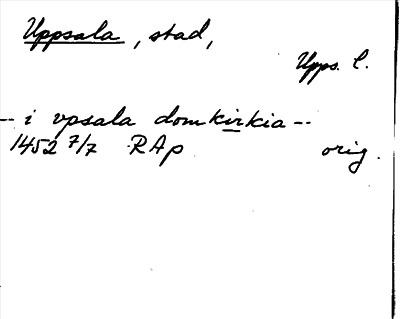 Uppsala, stad,
Upps. l.
-- i vpsala domkirkia --
1452 7/7 RAp orig.